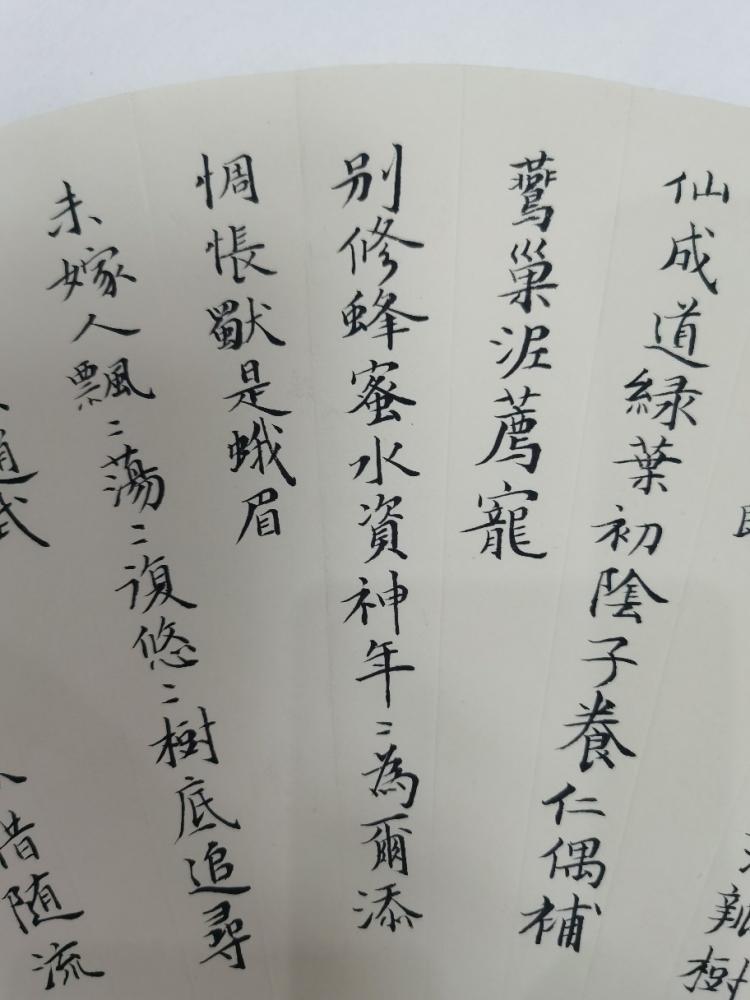 瓣樹
仙成道綠葉初陰子養仁偶補
鷰巢泥薦寵
别修蜂蜜水資神年〻為爾添
惆悵獨是蛾眉
未嫁人飄〻蕩〻復悠〻樹底追尋
随流